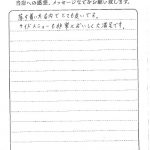 当店への感想、メッセージなどをお願い致します。
落ち着いた店内でとても良いです。
サイドメニューも非常においしく大満足です。